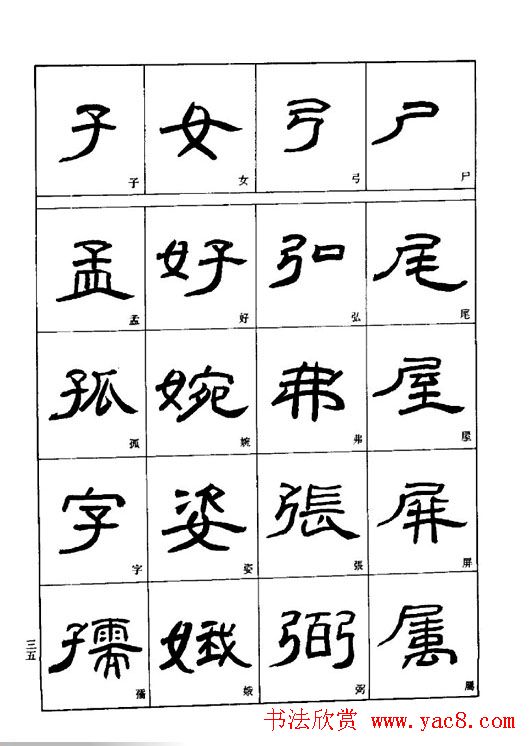 尸 尾 屋 屏 属
尸 尾 屋 屏 屬
弓 弘 弗 張 弼
弓 弘 弗 張 弼
女 好 婉 姿 娥
女 好 婉 姿 娥
子 孟 孤 字 孺
子 孟 孤 字 孺
三五
书法欣赏 www.yac8.com